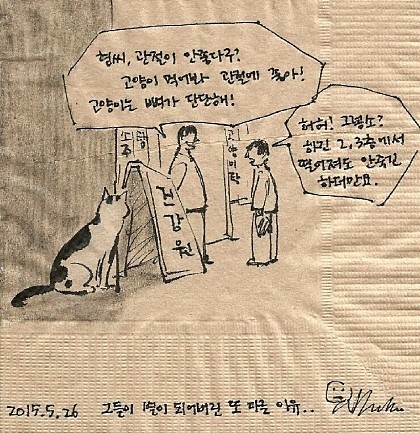 형씨, 관절이 안좋다구?
고양이 먹어봐 관절에 좋아!
고양이는 뼈가 단단해!
허허! 그렇소?
하긴 2, 3층에서
떨어져도 안죽긴
하더만요.
고양이탕
건강원
2015.5.26 그들이 1순이 되어버린 또 다른 이유..